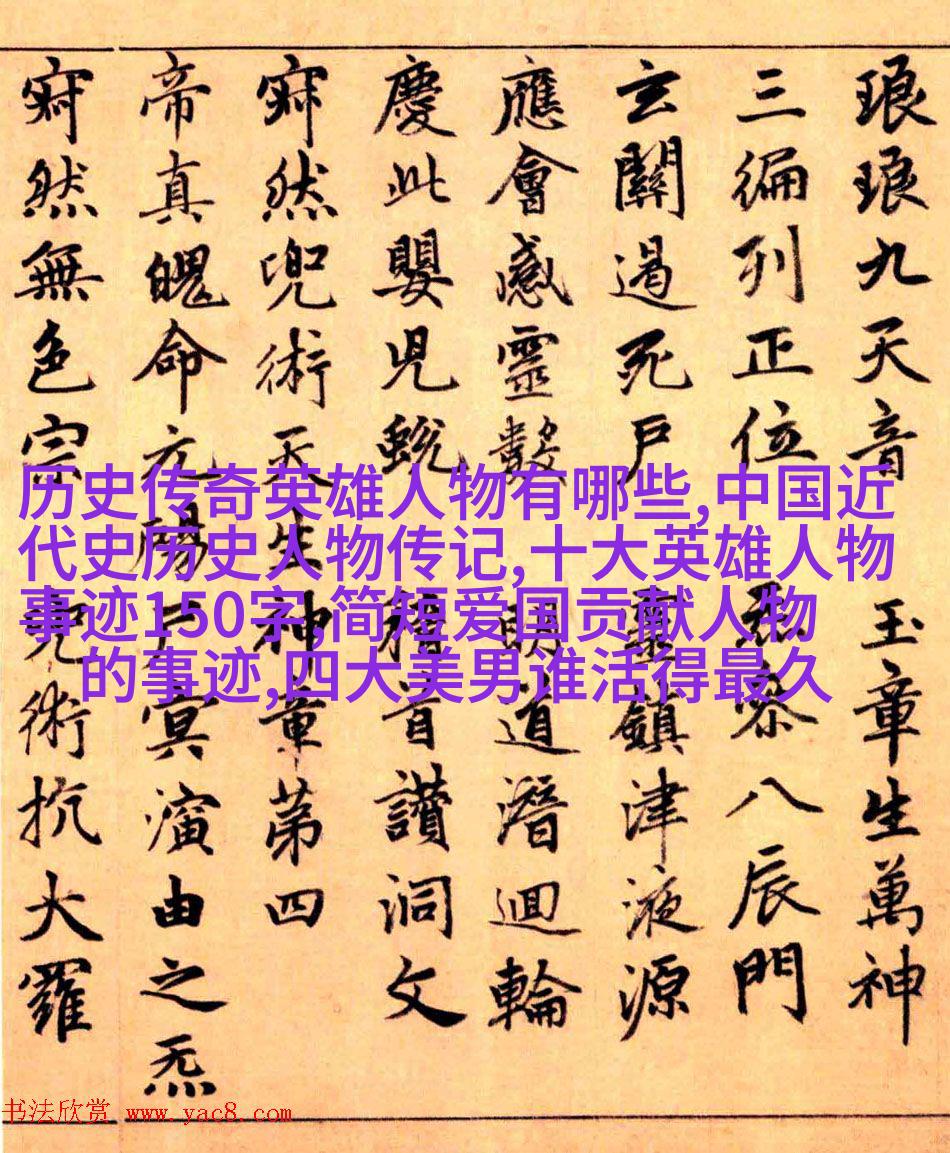 琅琅九天音玉章生萬神
三徧列正位八辰門
玄關遏死戶靈鎮津液源
應會感靈數明道潛迴輪
慶此嬰兒蛻稽首讚洞文
寂然兜術天生神章第四
帝真魄命元陽尸冥演由之炁
寂然無色宗兜術抗大羅
历史传奇英雄人物有哪些,中国近
代史历史人物传记,十大英雄人物
事迹150字,简短爱国贡献人物
的事迹,四大美男谁活得最久
书法欣赏 www.yac8.com